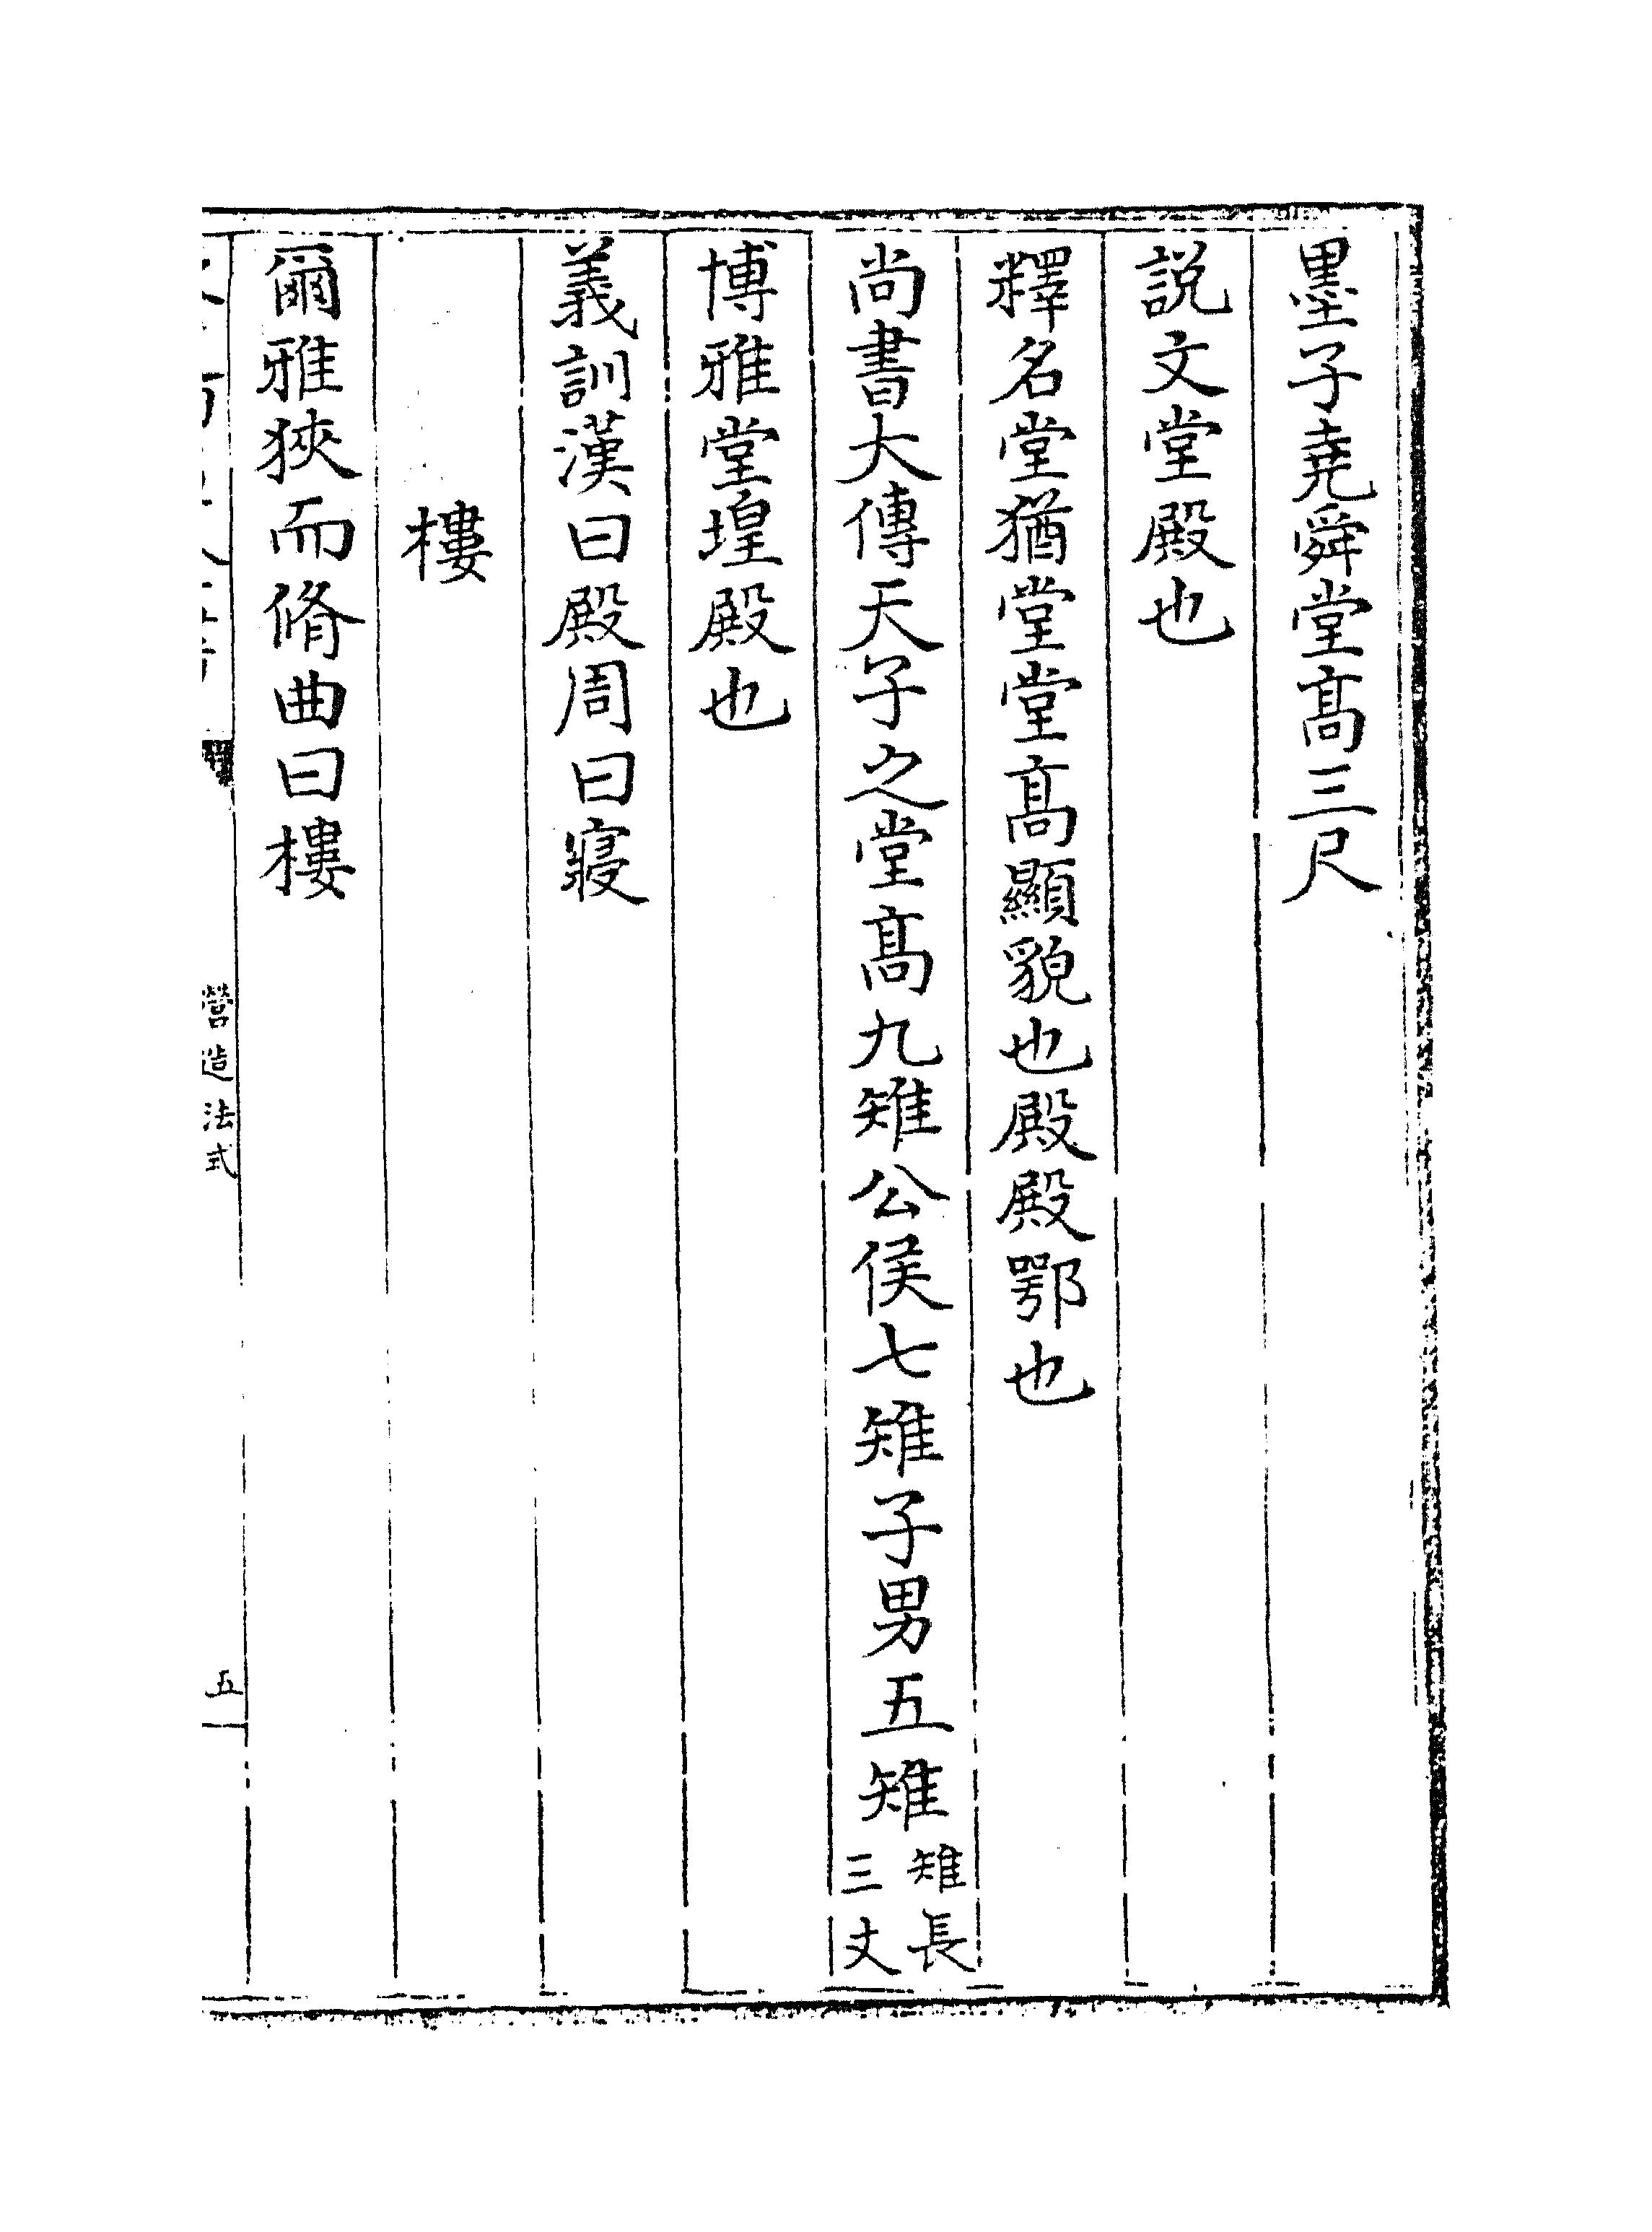 墨子堯舜堂髙三尺
説文堂殿也
釋名堂猶堂堂髙顯貌也殿殿鄂也
尚書大傳天子之堂髙九雉公侯七雉子男五雉雉長三丈
博雅堂堭殿也
義訓漢曰殿周曰寢
樓
爾雅狹而脩曲曰樓
營造法式
五